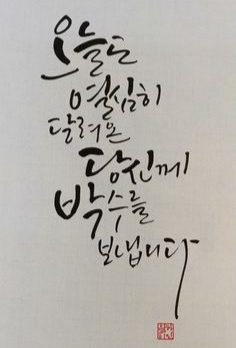 오늘도
열심히
달려온
당신께
박수를
보냅니다